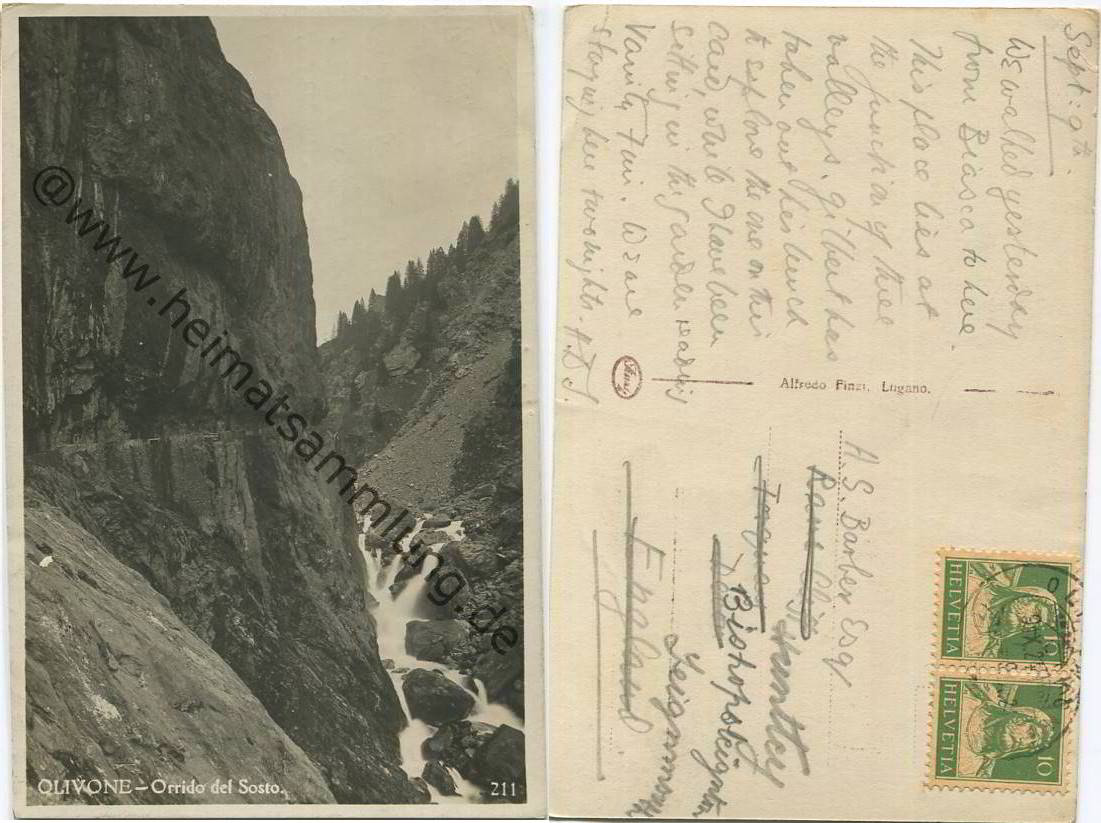 OLIVONE – Orrido del Sosto.
211
@www.heimatsammlung.de
Sept: 9th.
We walked yesterday
from Biasca to here.
This place lies at
the junction of three
valleys. Gilbert has
taken out his lunch
to explore the one on this
card, while I have been
sitting in the garden reading
Vanity Fair. We are
staying here two nights.
Alfredo Finzi, Lugano.
A. S. Barber Esq.
Bishopsteignton
Teignmouth
England
HELVETIA
10
HELVETIA
10